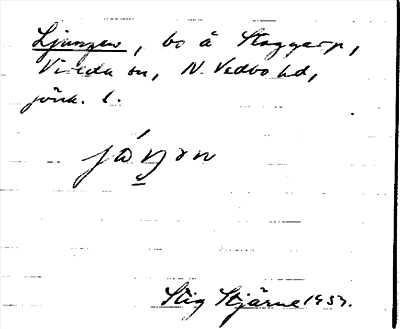 Ljungen, bo å Skaggarp,
Vireda sn, N. Vedbo hd,
jönk. l.
Stig Stjärne 1937.